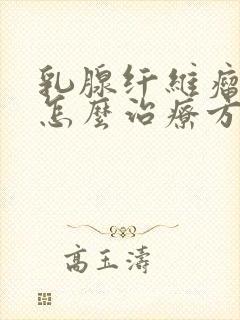 乳腺纤維瘤
怎麼治療方
高玉濤